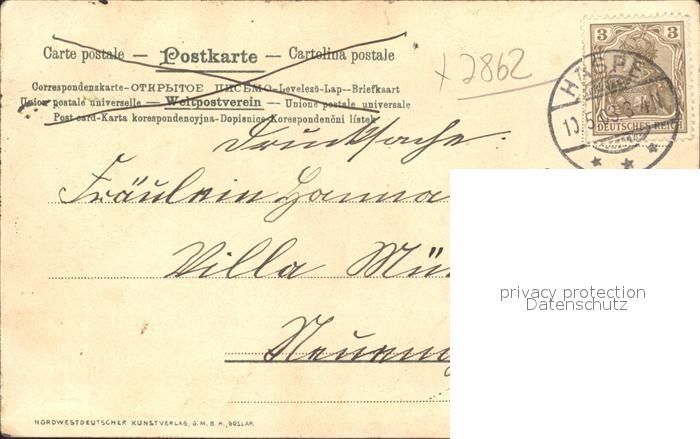 Carte postale — Postkarte — Cartolina postale
Correspondenskarte–ОТКРЫТОЕ ПИСЬМО–Levelező-Lap–Briefkaart
Union postale universelle — Weltpostverein — Unione postale universale
Post card-Karta korespondencyjna-Dopisnice-Korespondenční lístek
+ 2862
3 3
DEUTSCHES REICH
HASPE
10.5.03.3-4N.
Drucksache.
Fräulein Hanna
Villa Mü
privacy protection
Datenschutz
NORDWESTDEUTSCHER KUNSTVERLAG, G.M.B.H., GOSLAR.